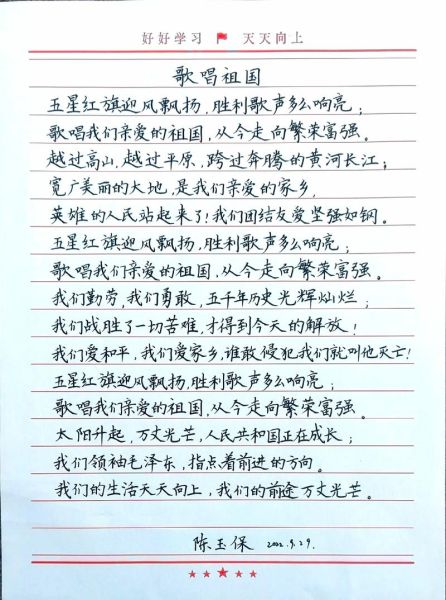 好好学习 天天向上
歌唱祖国
五星红旗迎风飘扬,胜利歌声多么响亮;
歌唱我们亲爱的祖国,从今走向繁荣富强。
越过高山,越过平原,跨过奔腾的黄河长江;
宽广美丽的大地,是我们亲爱的家乡,
英雄的人民站起来了!我们团结友爱坚强如钢。
五星红旗迎风飘扬,胜利歌声多么响亮;
歌唱我们亲爱的祖国,从今走向繁荣富强。
我们勤劳,我们勇敢,五千年历史光辉灿烂;
我们战胜了一切苦难,才得到今天的解放!
我们爱和平,我们爱家乡,谁敢侵犯我们就叫他灭亡!
五星红旗迎风飘扬,胜利歌声多么响亮;
歌唱我们亲爱的祖国,从今走向繁荣富强。
太阳升起,万丈光芒,人民共和国正在成长;
我们领袖毛泽东,指点着前进的方向。
我们的生活天天向上,我们的前途万丈光芒。
陈玉保 2022.9.29.